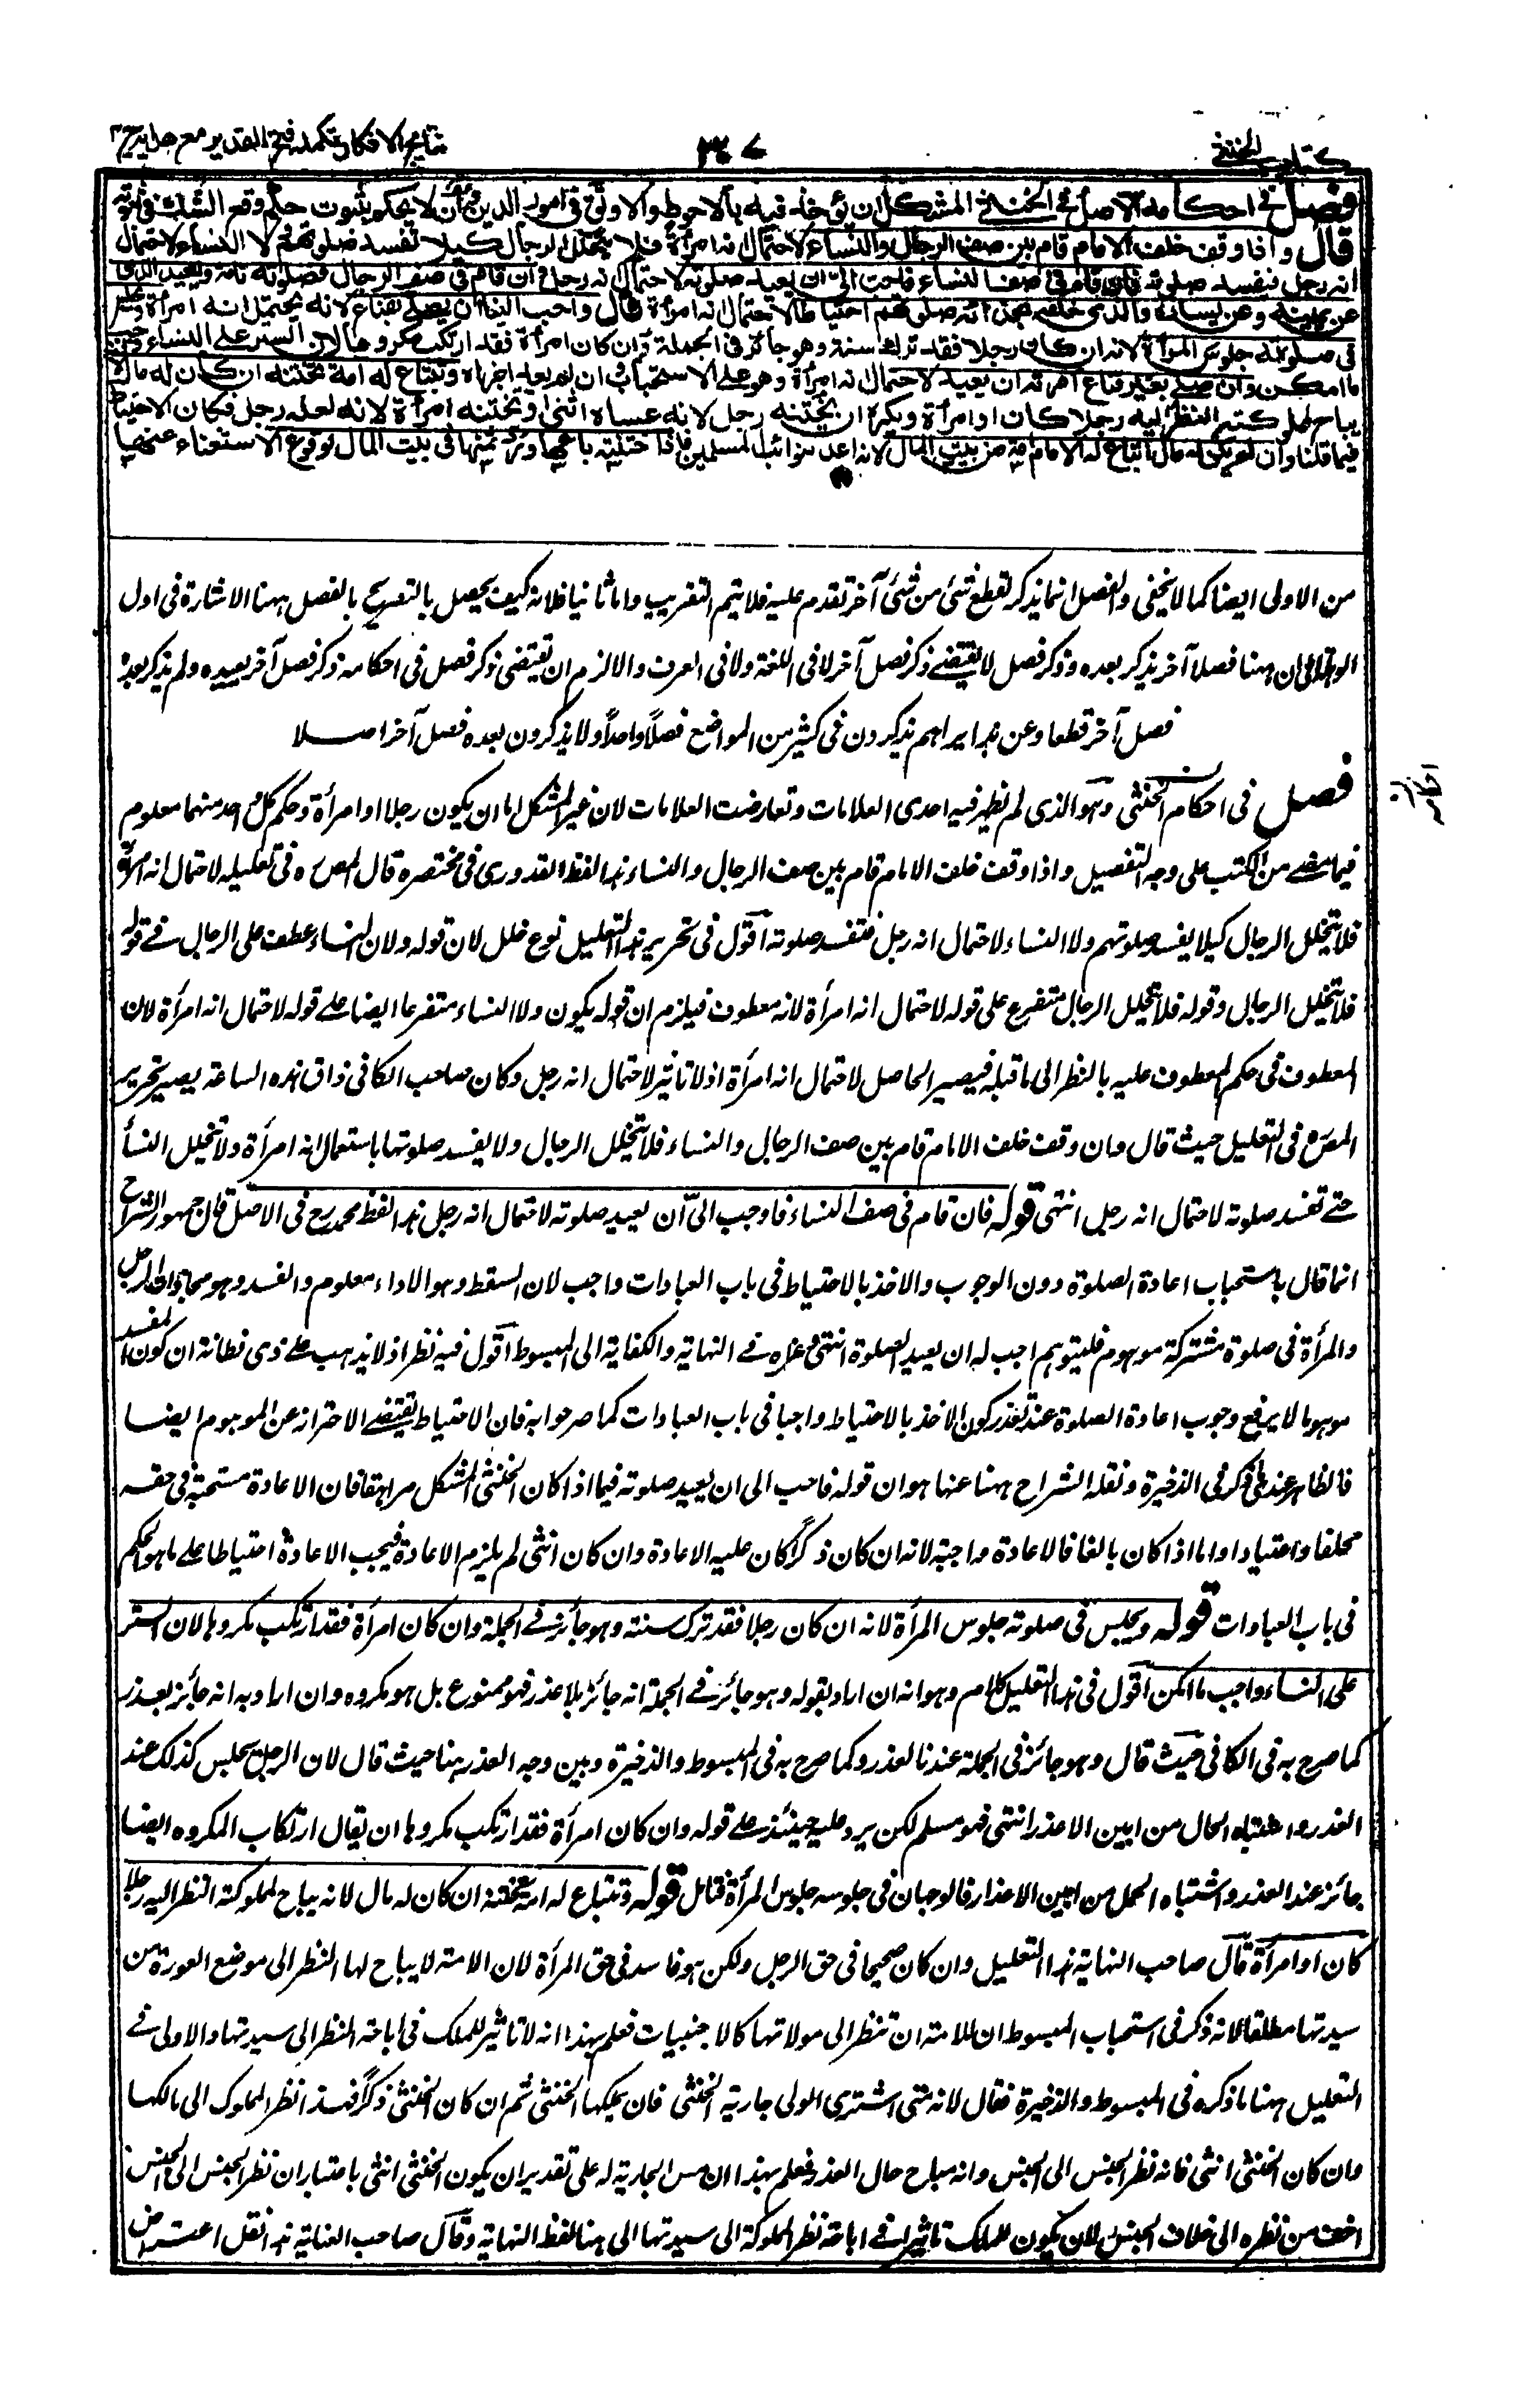 كتاب الخنثى
٣٤٧
نتايج الافكار تكملة فتح القدير مع هدايه ج ٣
فصل في احكامه الاصل في الخنثى المشكل ان يؤخذ فيه بالاحوط والاوثق في امور الدين وان لا يحكم بثبوت حكم وقع الشك في ثبوته
قال واذا وقف خلف الامام قام بين صف الرجال والنساء لاحتمال انه امرأة فلا يتخلل الرجال كيلا تفسد صلوتهم ولا النساء لاحتمال
انه رجل فتفسد صلوته فان قام في صف النساء فاحب الي ان يعيد صلوته لاحتمال انه رجل وان قام في صف الرجال فصلوته تامة ويعيد الذي
عن يمينه وعن يساره والذي خلفه بحذائه صلوتهم احتياطا لاحتمال انه امرأة قال واحب الينا ان يصلي بقناع لانه يحتمل انه امرأة ويجلس
في صلوته جلوس المرأة لانه ان كان رجلا فقد ترك سنة وهو جائز في الجملة وان كان امرأة فقد ارتكب مكروها لان الستر على النساء واجب
ما امكن وان صلى بغير قناع امرته ان يعيد لاحتمال انه امرأة وهو على الاستحباب وان لم يعد اجزاه وتبتاع له امة تختنه ان كان له مال لانه
يباح لمملوكته النظر اليه رجلا كان او امرأة ويكره ان يختنه رجل لانه عساه انثى او تختنه امرأة لانه لعله رجل فكان الاحتياط
فيما قلنا وان لم يكن له مال ابتاع له الامام امة من بيت المال لانه اعد لنوائب المسلمين فاذا ختنته باعها ورد ثمنها في بيت المال لوقوع الاستغناء عنها
من الاولى ايضا كما لا يخفى والفصل انما يذكر لقطع شئ من شئ آخر تقدم عليه فلا يتم التقريب واما ثانيا فلانه كيف يحصل بالتصريح بالفصل ههنا الاشارة في اول
الوهلة الى ان ههنا فصلا آخر يذكر بعده وذكر فصل لا يقتضي ذكر فصل آخر لا في اللغة ولا في العرف والا لزم ان يقتضي ذكر فصل في احكامه ذكر فصل آخر بعيده ولم يذكر بعده
فصل آخر قطعا وعن هذا تراهم يذكرون في كثير من المواضع فصلا واحدا ولا يذكرون بعده فصل آخر اصلا
فصل في احكام الخنثى وهو الذي لم يظهر فيه احدى العلامات وتعارضت العلامات لان غير المشكل اما ان يكون رجلا او امرأة وحكم كل واحد منهما معلوم
فيما مضى من الكتب على وجه التفصيل واذا وقف خلف الامام قام بين صف الرجال والنساء هذا لفظ القدوري في مختصره قال المصره في تعليله لاحتمال انه امرأة
فلا يتخلل الرجال كيلا يفسد صلوتهم ولا النساء لاحتمال انه رجل فتفسد صلوته اقول في تحرير هذا التعليل نوع خلل لان قوله ولا النساء عطف على الرجال في قوله
فلا يتخلل الرجال وقوله فلا يتخلل الرجال متفرع على قوله لاحتمال انه امرأة لانه معطوف فيلزم ان قوله يكون ولا النساء متفرعا ايضا على قوله لاحتمال انه امرأة لان
المعطوف في حكم المعطوف عليه بالنظر الى ما قبله فيصير الحاصل لاحتمال انه امرأة اذ لا تاثير لاحتمال انه رجل وكان صاحب الكافي ذاق هذه الساعة يصير تحرير
المص في التعليل حيث قال وان وقف خلف الامام قام بين صف الرجال والنساء فلا يتخلل الرجال ولا يفسد صلوتها باستعمال انه امرأة ولا تتخلل النسأ
حتى تفسد صلوته لاحتمال انه رجل انتهى قوله فان قام في صف النساء فاوجب الي ان يعيد صلوته لاحتمال انه رجل هذا لفظ محمد رح في الاصل قال جمهور الشراح
انما قال باستحباب اعادة الصلوة دون الوجوب والاخذ بالاحتياط في باب العبادات واجب لان المسقط وهو الاداء معلوم والمفسد وهو محاذاة الرجل
والمرأة في صلوة مشتركة موهوم فلتوهم احب له ان يعيد الصلوة انتهى وعزاه في النهاية والكفاية الى المبسوط اقول فيه نظر اذ لا يذهب على ذي فطانة ان كون المفسد
موهوما لا يرفع وجوب اعادة الصلوة عند تقرر كون الاخذ بالاحتياط واجبا في باب العبادات كما صرحوا به فان الاحتياط يقتضي الاحتراز عن الموهوم ايضا
فالظاهر عندي ما ذكر في الذخيرة ونقله الشراح ههنا عنها هو ان قوله فاحب الى ان يعيد صلوته فيما اذا كان الخنثى المشكل مراهقا فان الاعادة مستحبة في حقه
تخلقا واعتيادا واما اذا كان بالغا فالاعادة واجبة لانه ان كان ذكرا كان عليه الاعادة وان كان انثى لم يلزم الاعادة فيجب الاعادة احتياطا على ما هو الحكم
في باب العبادات قوله ويجلس في صلوته جلوس المرأة لانه ان كان رجلا فقد ترك سنته وهو جائز في الجملة وان كان امرأة فقد ارتكب مكروها لان الستر
على النساء واجب ما امكن اقول في هذا التعليل كلام وهو انه ان اراد بقوله وهو جائز في الجملة انه جائز بلا عذر فهو ممنوع بل هو مكروه وان اراد به انه جائز بعذر
كما صرح به في الكافي حيث قال وهو جائز في الجملة عندنا لعذر وكما صرح به في المبسوط والذخيرة وبين وجه العذر هنا حيث قال لان الرجل يجلس كذلك عند
العذر واشتباه الحال من ابين الاعذار انتهى فهو مسلم لكن يرد عليه حينئذ على قوله وان كان امرأة فقد ارتكب مكروها ان يقال ارتكاب المكروه ايضا
جائز عند العذر واشتباه الحال من ابين الاعذار فالوجهان في جلوسه جلوس المرأة فتامل قوله وتبتاع له امة تختنه ان كان له مال لانه يباح لمملوكته النظر اليه رجلا
كان او امرأة قال صاحب النهاية هذا التعليل وان كان صحيحا في حق الرجل ولكن هو فاسد في حق المرأة لان الامة لا يباح لها النظر الى موضع العورة من
سيدتها مطلقا لانه ذكر في استحباب المبسوط ان للامة ان تنظر الى مولاتها كالاجنبيات فعلم بهذا انه لا تاثير للملك في اباحة النظر الى سيدتها والاولى في
التعليل ههنا ما ذكره في المبسوط والذخيرة فقال لانه متى اشترى الولى جارية الخنثى فان يملكها الخنثى ثم ان كان الخنثى ذكرا فهذا نظر المملوك الى مالكها
وان كان الخنثى انثى فانه نظر الجنس الى الجنس وانه مباح حال العذر فعلم بهذا ان مس الجارية له على تقدير ان يكون الخنثى انثى باعتبار ان نظر الجنس الى الجنس
اخف من نظره الى خلاف الجنس لا ان يكون للملك تاثيرا في اباحة نظر المملوكة الى سيدتها الى هنا لفظ النهاية وقال صاحب العناية هذا نقل اعتراض